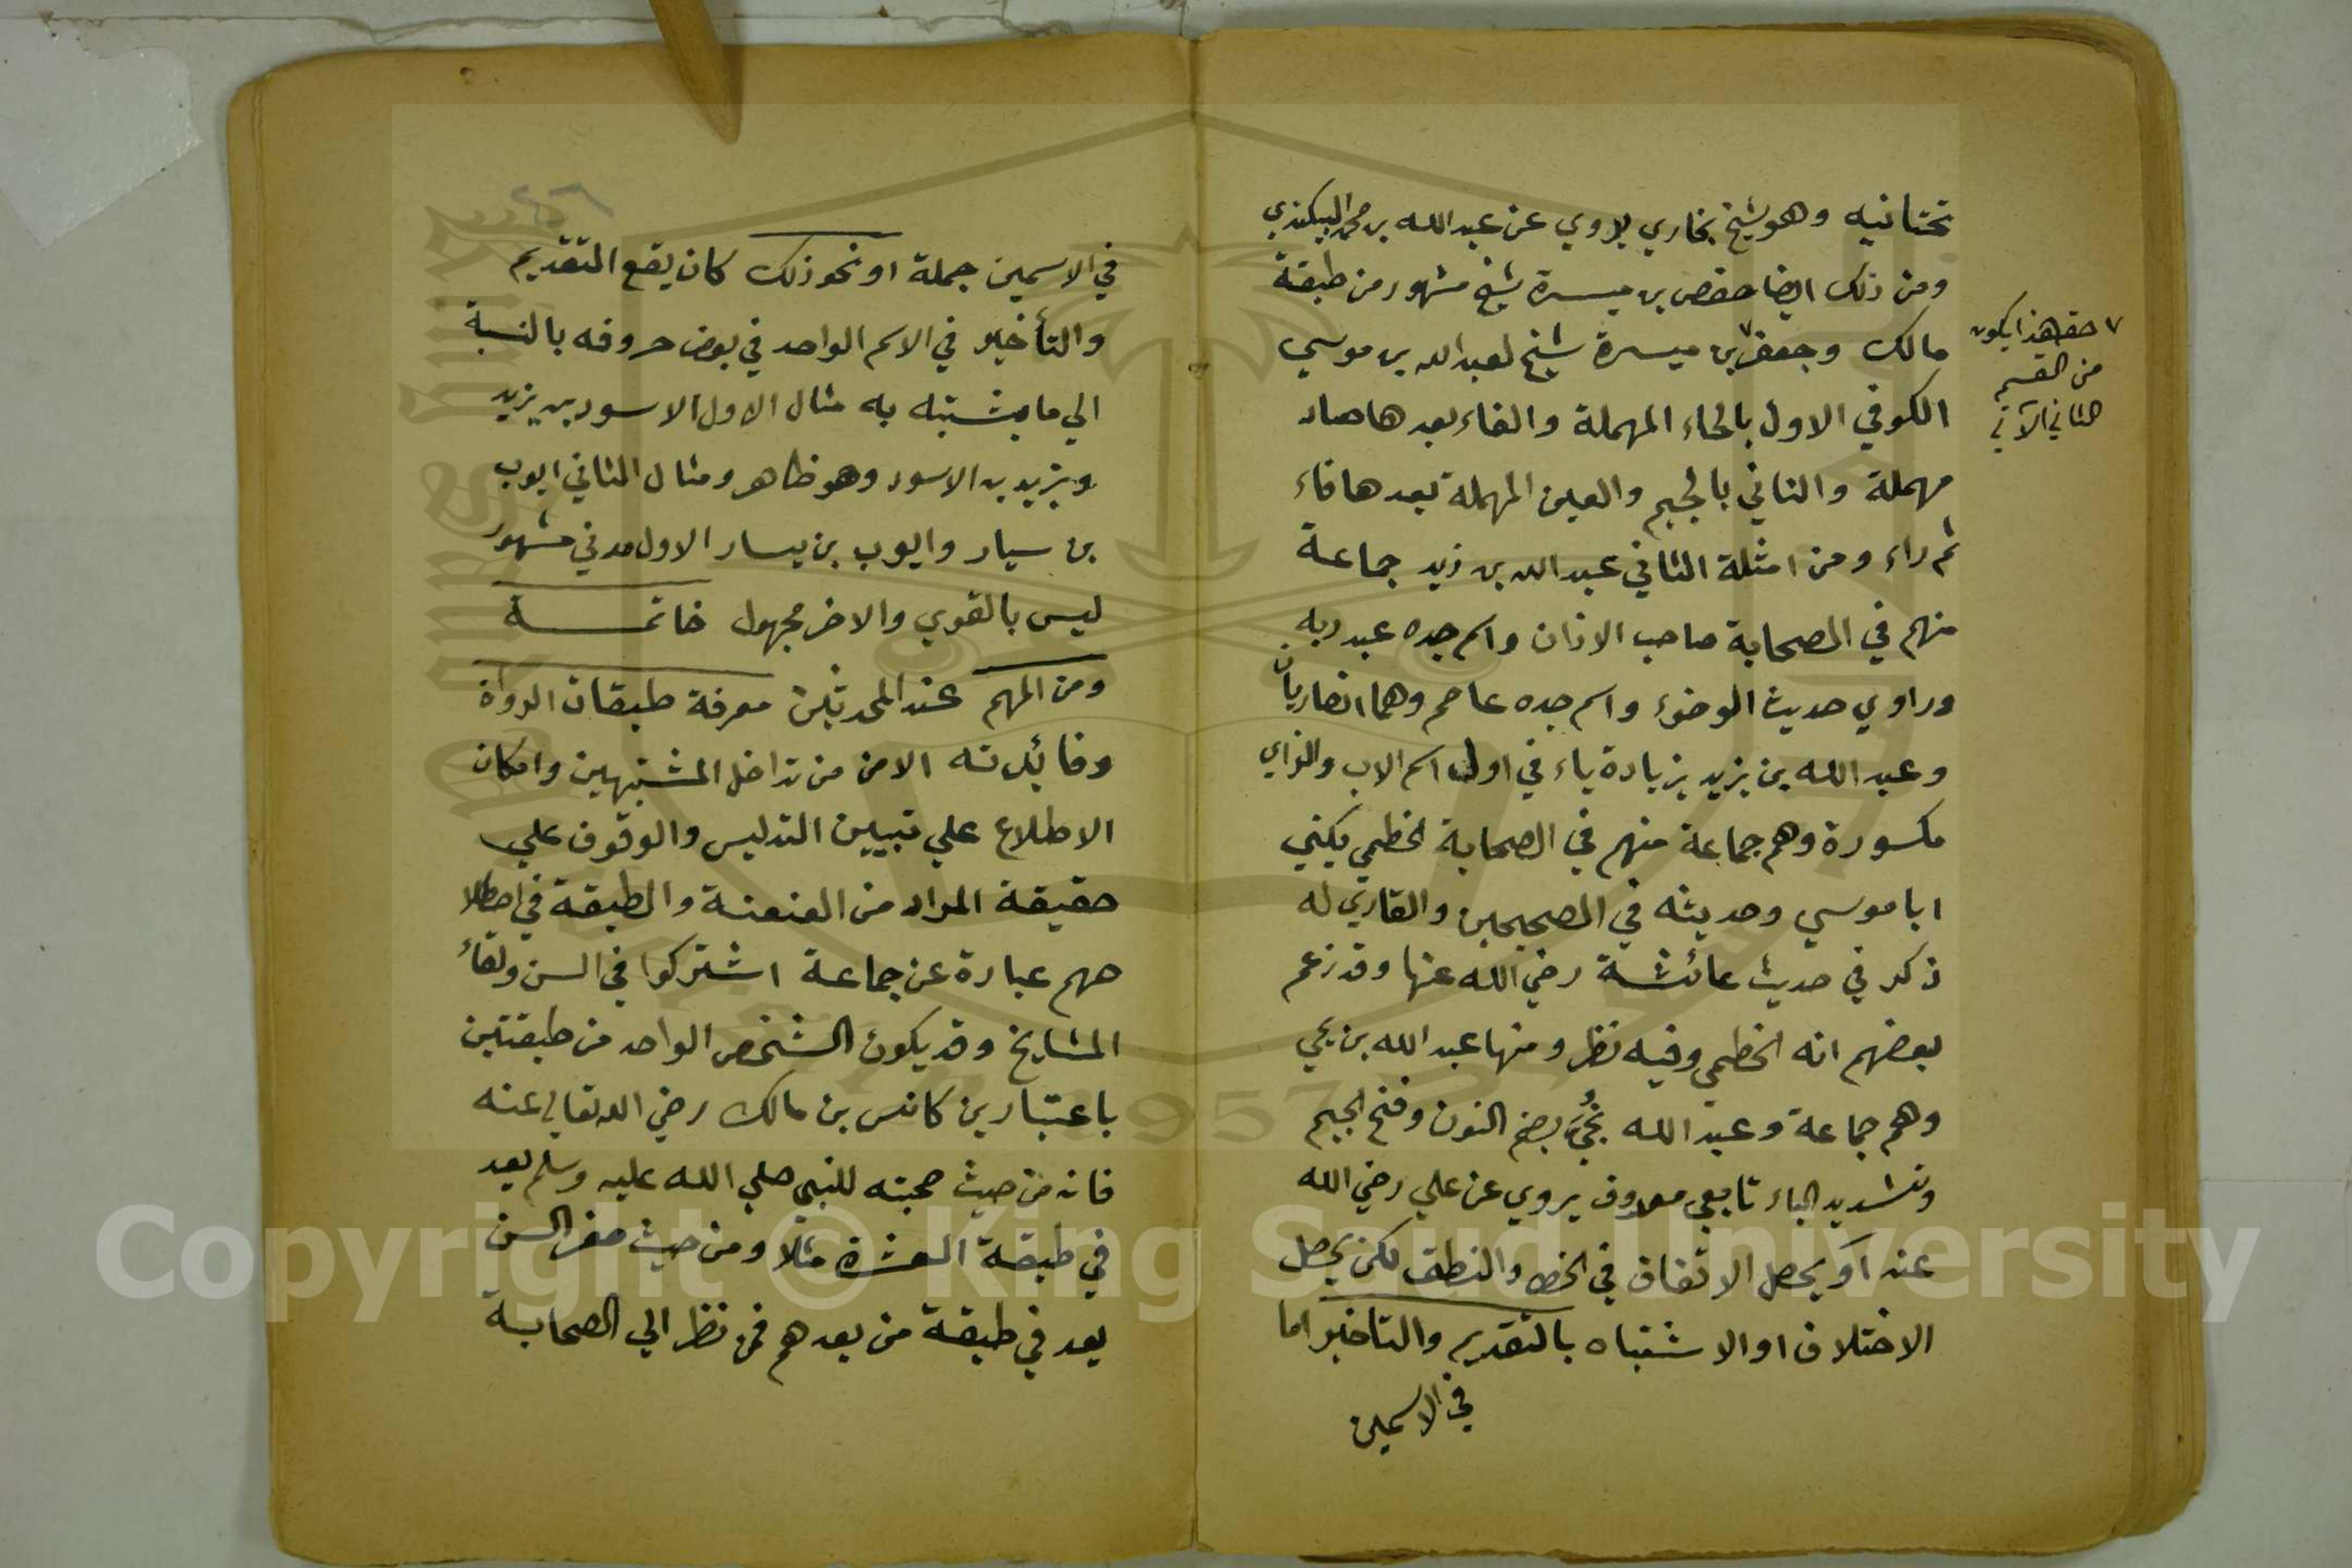 تحتانيه وهو شيخ بخاري يروي عن عبد الله بن محمد البيكندي
ومن ذلك ايضا حفص بن ميسرة شيخ مشهور من طبقة
مالك وجعفر بن ميسرة شيخ لعبد الله بن موسي
الكوفي الاول بالحاء المهملة والفاء بعدها صاد
مهملة والثاني بالجيم والعين المهملة بعدها فاء
ثم راء ومن امثلة الثاني عبد الله بن زيد جماعة
منهم في الصحابة صاحب الاذان واسم جده عبد ربه
وراوي حديث الوضوء واسم جده عاصم وهما انصاريان
وعبد الله بن يزيد بزيادة ياء في اول اسم الاب والزاي
مكسورة وهم جماعة منهم في الصحابة الخطمي يكني
ابا موسي وحديثه في الصحيحين والقاري له
ذكر في حديث عائشة رضي الله عنها وقد زعم
بعضهم انه الخطمي وفيه نظر ومنها عبد الله بن يحي
وهم جماعة وعبد الله نُجَيّ بضم النون وفتح الجيم
وتشديد الياء تابعي معروف يروي عن علي رضي الله
عنه او يحصل الاتفاق في الخط والنطق لكن يحصل
الاختلاف او الاشتباه بالتقديم والتاخير اما
في الاسمين
٧ حق هذا يكون
من القسم
الثاني الآتي
في الاسمين جملة او نحو ذلك كان يقع التقديم
والتأخير في الاسم الواحد في بعض حروفه بالنسبة
الي ما يشتبه به مثال الاول الاسود بن يزيد
ويزيد بن الاسود وهو ظاهر ومثال الثاني ايوب
بن سيار وايوب بن يسار الاول مدني مشهور
ليس بالقوي والاخر مجهول خاتمة
ومن المهم عند المحدثين معرفة طبقات الرواة
وفائدته الامن من تداخل المشتبهين وامكان
الاطلاع علي تبيين التدليس والوقوف علي
حقيقة المراد من العنعنة والطبقة في اصطلا
حهم عبارة عن جماعة اشتركوا في السن ولقاء
المشايخ وقد يكون الشخص الواحد من طبقتين
باعتبارين كانس بن مالك رضي الله تعالي عنه
فانه من حيث صحبته للنبي صلي الله عليه وسلم يعد
في طبقة العشرة مثلا ومن حيث صغر السن
يعد في طبقة من بعدهم فمن نظر الي الصحابة
Copyright © King Saud University
1957